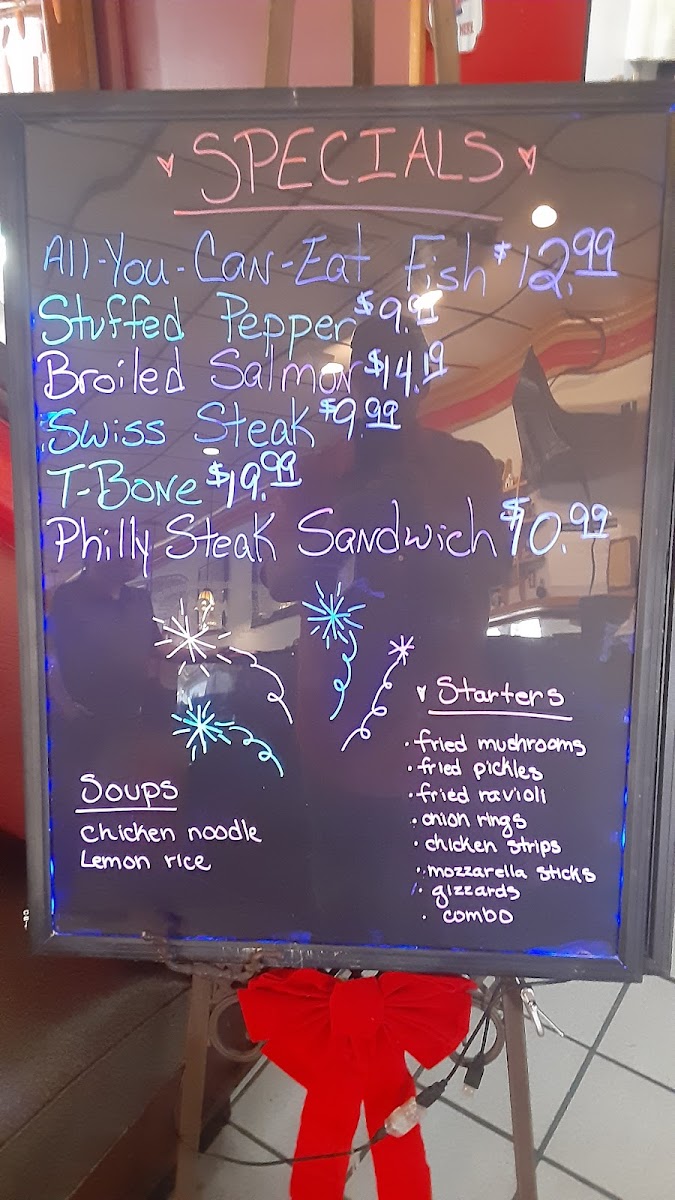 SPECIALS
All-You-Can-Eat Fish $12.99
Stuffed Pepper $9.99
Broiled Salmon $14.19
Swiss Steak $9.99
T-Bone $19.99
Philly Steak Sandwich $10.99
Starters
fried mushrooms
fried pickles
fried ravioli
onion rings
chicken strips
mozzarella sticks
gizzards
combo
Soups
chicken noodle
Lemon rice